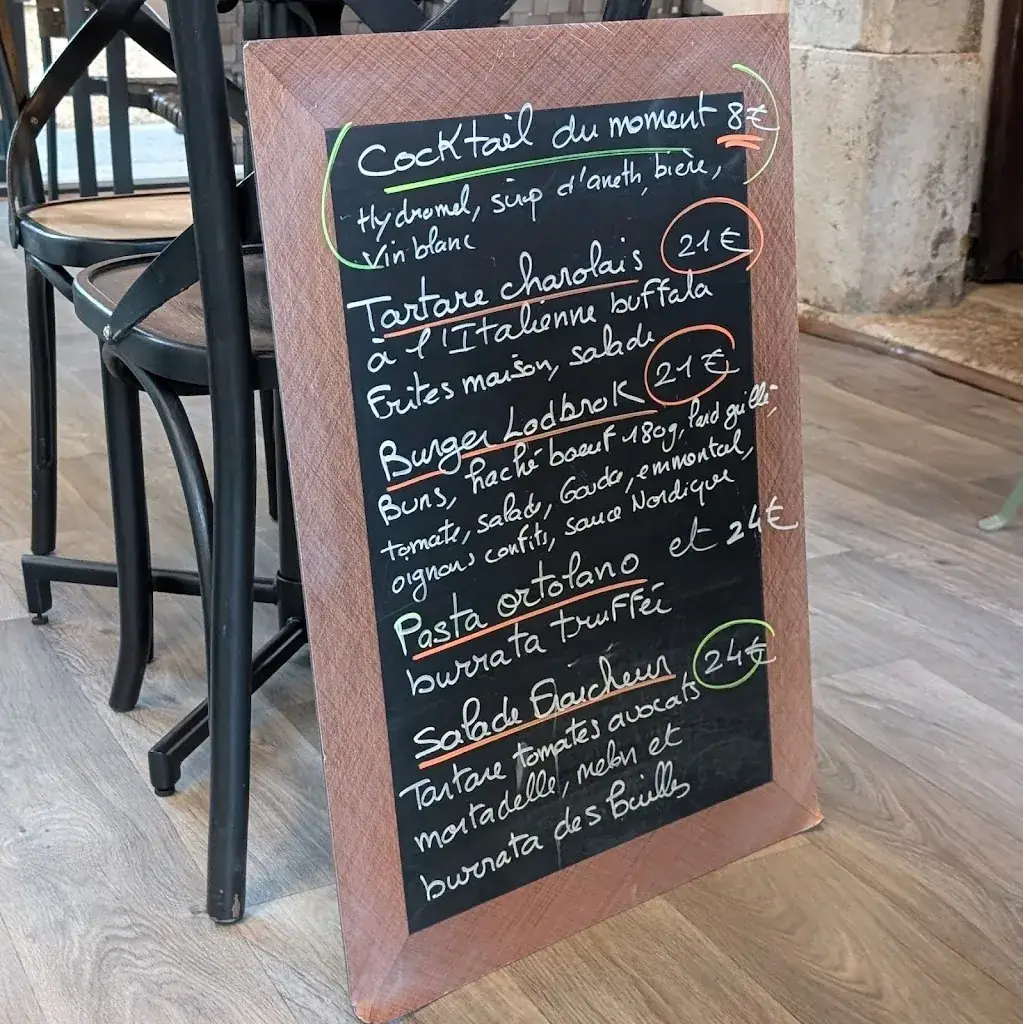 Cocktail du moment 8€
Hydromel, sirop d'aneth, bière,
Vin blanc
Tartare charolais 21€
à l'Italienne buffala
Frites maison, salade
Burger Lodbrok 21€
Buns, haché boeuf 180g, lard grillé,
tomate, salade, Gouda, emmental,
oignons confits, sauce Nordique
Pasta ortolano et 24€
burrata truffée
Salade Fraicheur 24€
Tartare tomates avocats
mortadelle, melon et
burrata des